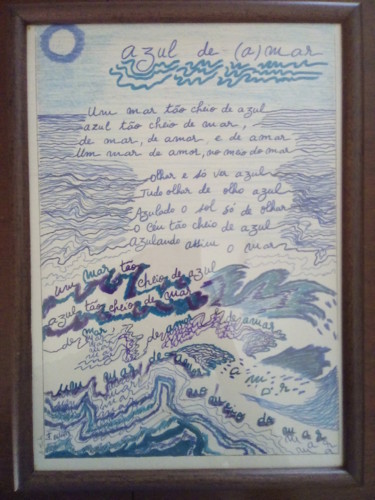 azul de (a)mar
Um mar tão cheio de azul
azul tão cheio de mar,
de mar, de amar, e de amar
Um mar de amor, no meio do mar
olhar e só ver azul
Tudo olhar de olho azul
Azulado o sol só de olhar
O Céu tão cheio de azul
Azulando assim o mar
um mar tão
cheio de azul
azul tão cheio de mar
de mar,
de amar
e de amar
um mar de amor
no meio do mar